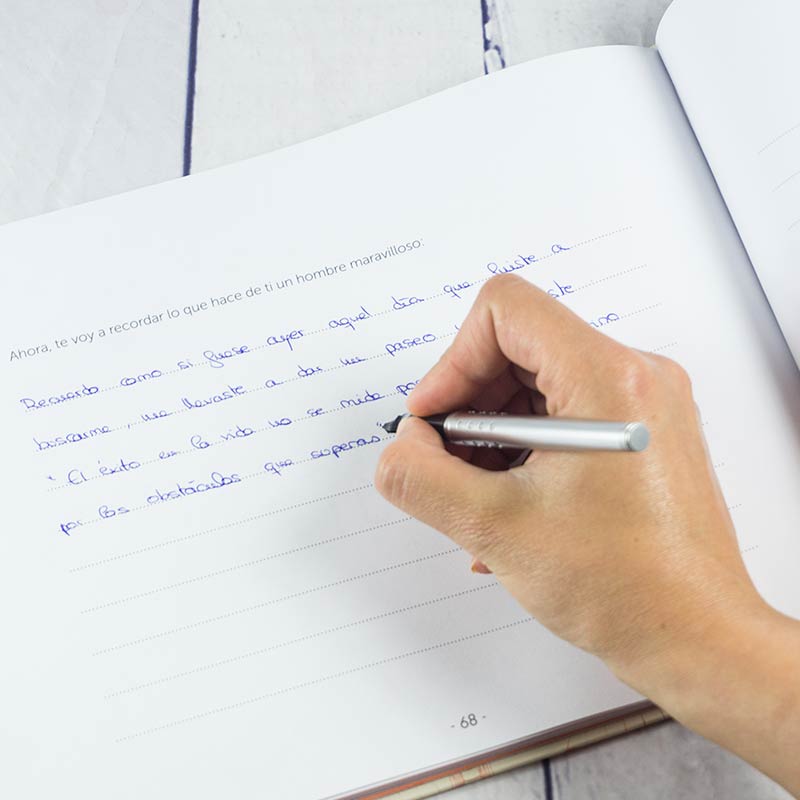 Ahora, te voy a recordar lo que hace de ti un hombre maravilloso:
Recuerdo como si fuese ayer aquel día que fuiste a
buscarme, me llevaste a dar un paseo
"El éxito en la vida no se mide
por los obstáculos que superas"
- 68 -